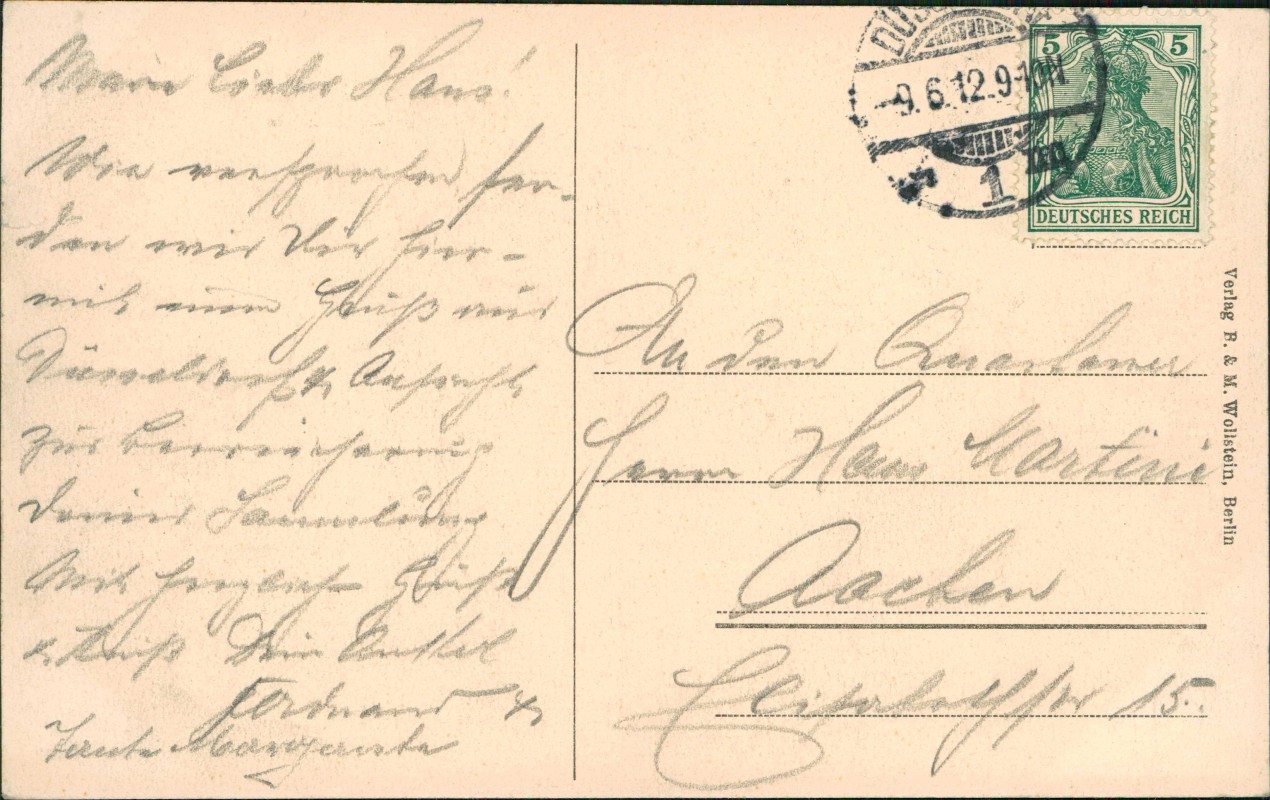 Mein lieber Hans!
Wie versprochen sen-
den wir Dir hier-
mit einen Gruß aus
Düsseldorf & Ansicht
zur Bereicherung
Deiner Sammlung
Mit herzlich Grüße
u. Kuß Dein Onkel
Ferdinand &
Tante Margarete
-9.6.12.9-10N
1
5 5
DEUTSCHES REICH
An den Quartaner
Herrn Hans Martini
Aachen
Elisabethstr 15.
Verlag R. & M. Wollstein, Berlin